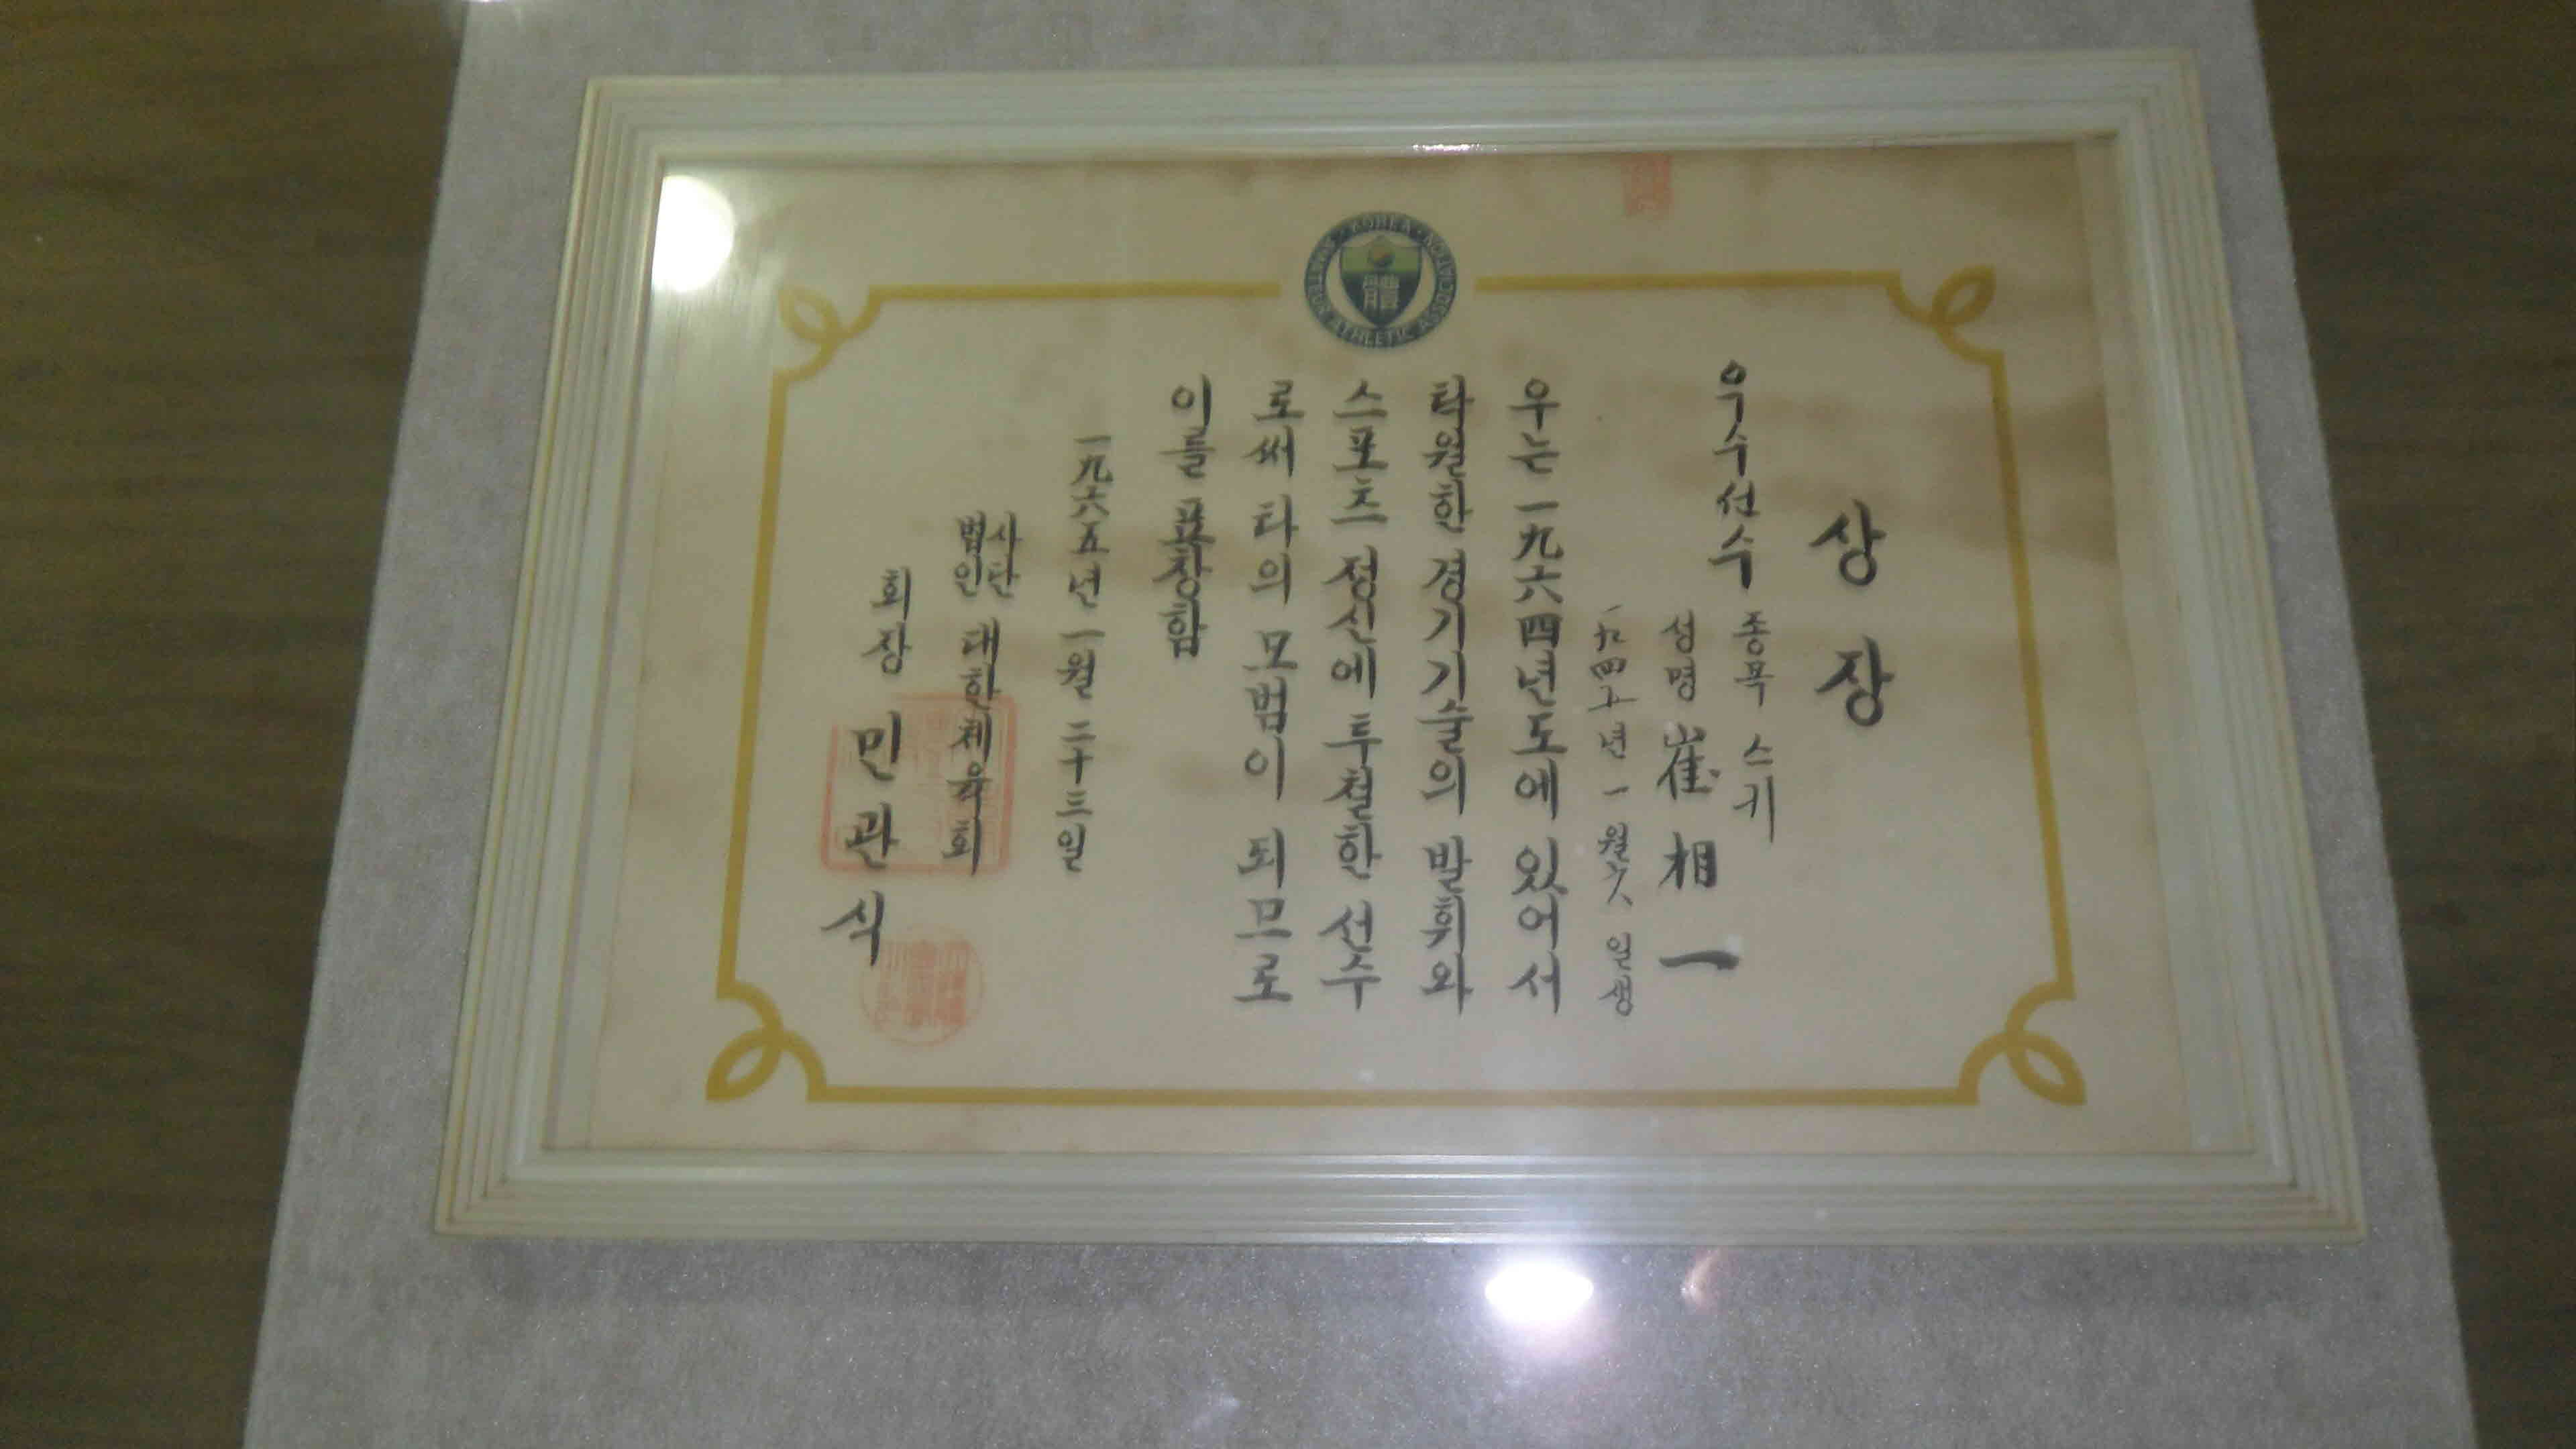 KOREA AMATEUR ATHLETIC ASSOCIATION
體
상장
우수선수
종목 스키
성명 崔相一
년一월 일생
우는 一九六四년도에 있어서
타월한 경기기술의 발휘와
스포츠 정신에 투철한 선수
로써 타의 모범이 되므로
이를 표창함
一九六五년 一월 二十三일
사단법인 대한체육회
회장 민관식